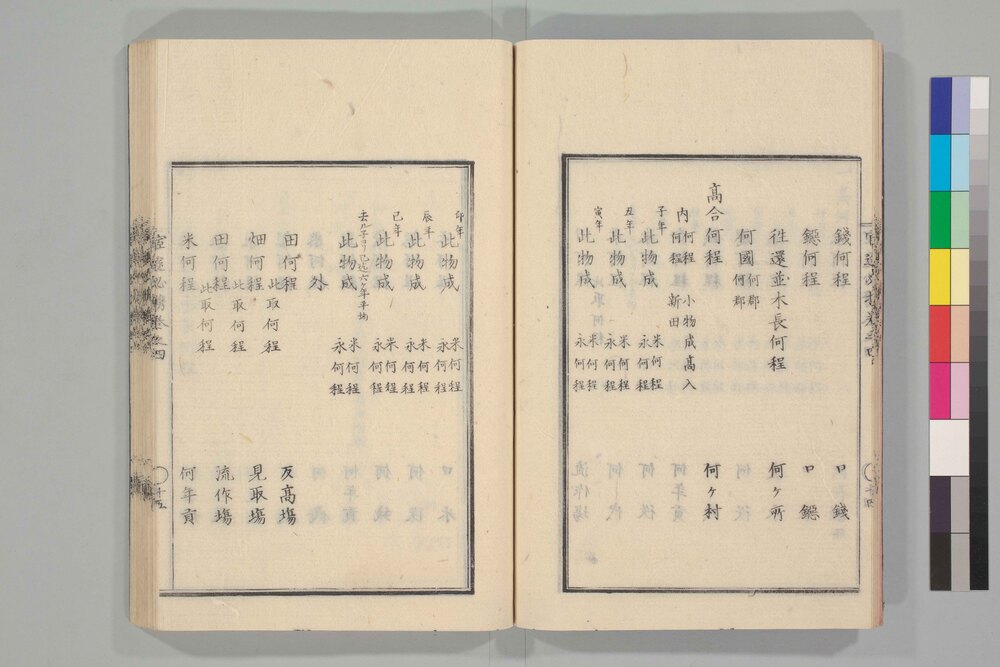 錢何程 口錢
鐚何程 口鐚
徃還並木長何程 何ケ所
何國 何郡 何郡
高合何程 何ケ村
内 何程 小物成高入
何程 新田
子年 此物成 米何程 永何程
丑年 此物成 米何程 永何程
寅年 此物成 米何程 永何程
卯年 此物成 米何程 永何程
辰年 此物成 米何程 永何程
巳年 此物成 米何程 永何程
去ル子ヨリ巳迄六ケ年平均 此物成 米何程 永何程
外
田何程 此取何程 反高場
畑何程 此取何程 見取場
田何程 此取何程 流作場
米何程 何年貢
十五